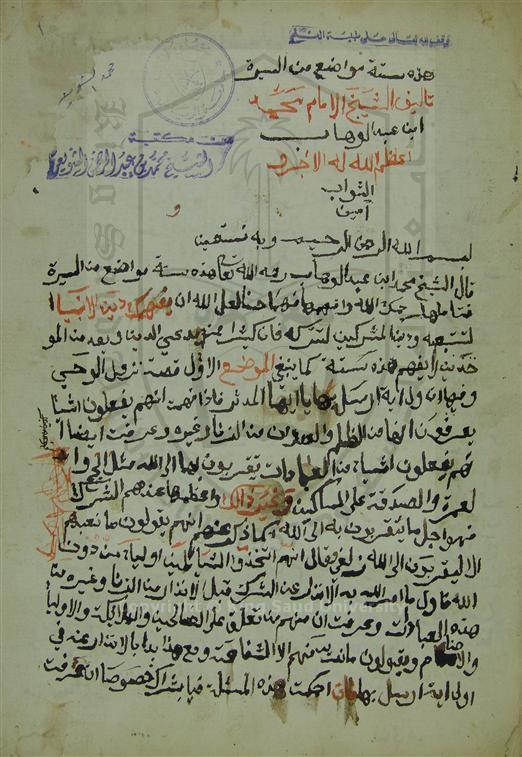 وقف لله تعالى على طلبة العلم
هذه ستة مواضع من السيرة
تاليف الشيخ الامام محمد
ابن عبد الوهاب
اعظم الله له الاجر و
الثواب
امين
من مكتبة
الشيخ محمد بن عبد الرحمن
بسم الله الرحمن الرحيم وبه نستعين
قال الشيخ محمد ابن عبد الوهاب رحمه الله تعا هذه ستة مواضع من السيرة
فتاملها رحمك الله وافهمها فهما حسنا لعل الله ان يفهمك دين الانبيا
لتتبعه ودين المشركين لتتركه فان كثيرا ممن يدعي الدين ويعد من المو
حدين لا يفهم هذه ستة كما ينبغي الموضع الاول قصة نزول الوحي
وفيها ان اول اية ارسله بها يا ايها المدثر فاذا فهمت انهم يفعلون اشيا
يعرفون انها من الظلم والعدوان من الزنا وغيره وعرفت ايضا ا
نهم يفعلون اشياء من العبادات يتقربون بها الى الله مثل الحج وا
لعمرة والصدقة على المساكين وغير ذلك واعظمها عندهم الشرك
فهو اجل ما يتقربون به الى الله كما ذكر عنهم انهم يقولون ما نعبدهم
الا ليقربونا الى الله زلفى وقال انهم اتخذوا الشياطين اوليا من دون
الله فاول ما امر الله به الانذار عن الشرك قبل الانذار من الزنا وغيره
هذه العبادات وعرفت ان منهم من تعلق على الصالحين والملائكة والاوليا
والاصنام ويقولون ما نريد منهم الا الشفاعة ومع هذا بدا بالانذار عنه في
اول اية ارسله بها فان احكمت هذه المسئلة فيا بشراك خصوصا ان عرفت
Copyright © King Saud University